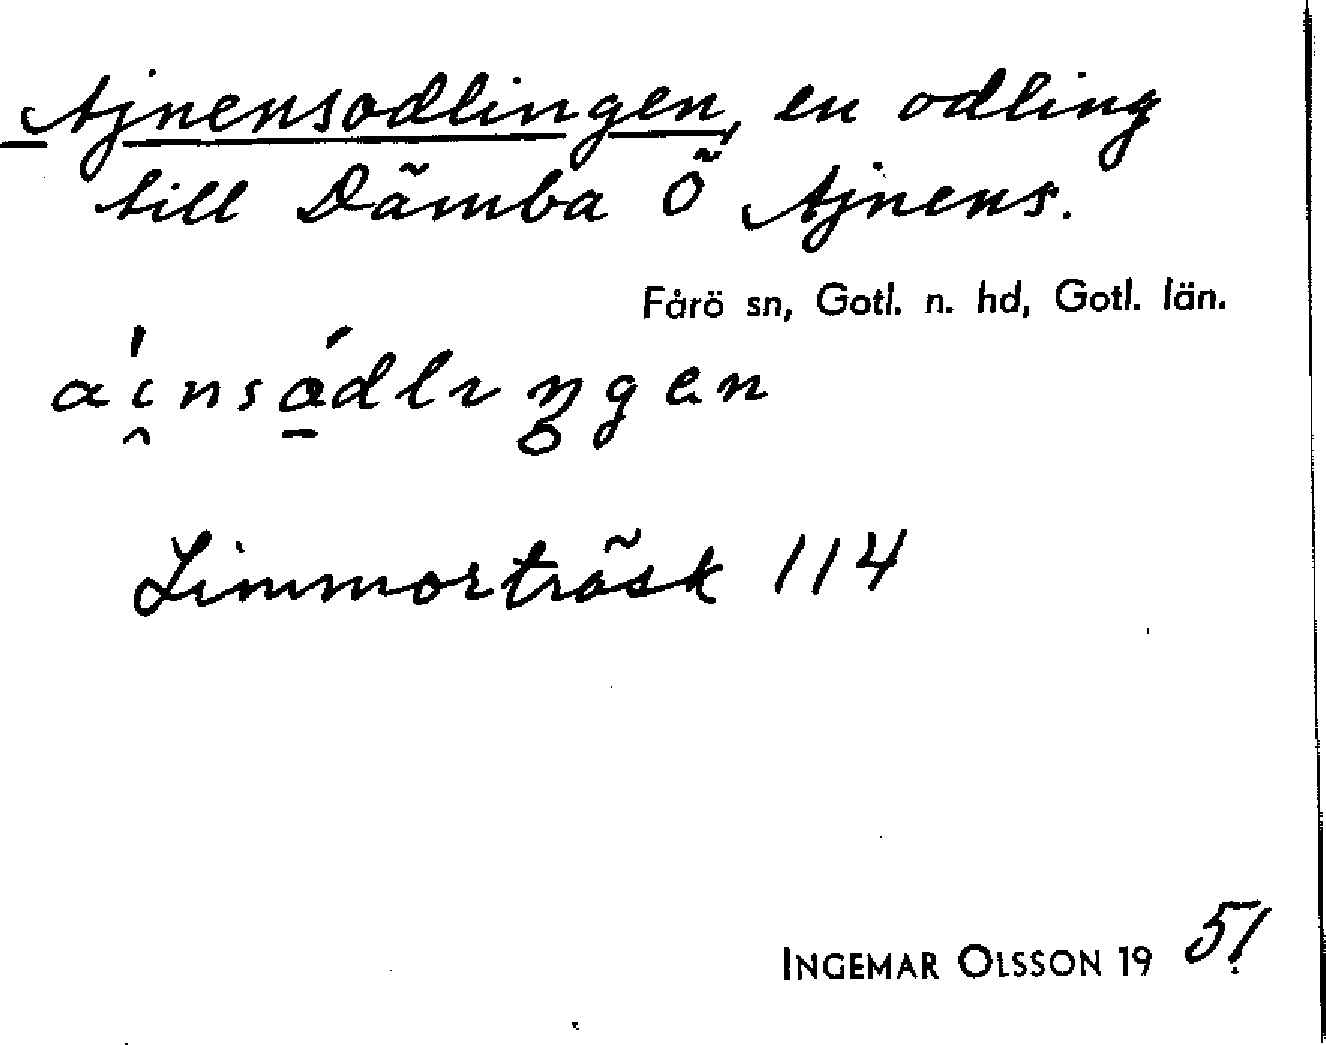 Ajnensodlingen, en odling
till Dämba Ö Ajnens.
Fårö sn, Gotl. n. hd, Gotl. län.
Limmorträsk 114
INGEMAR OLSSON 19 51